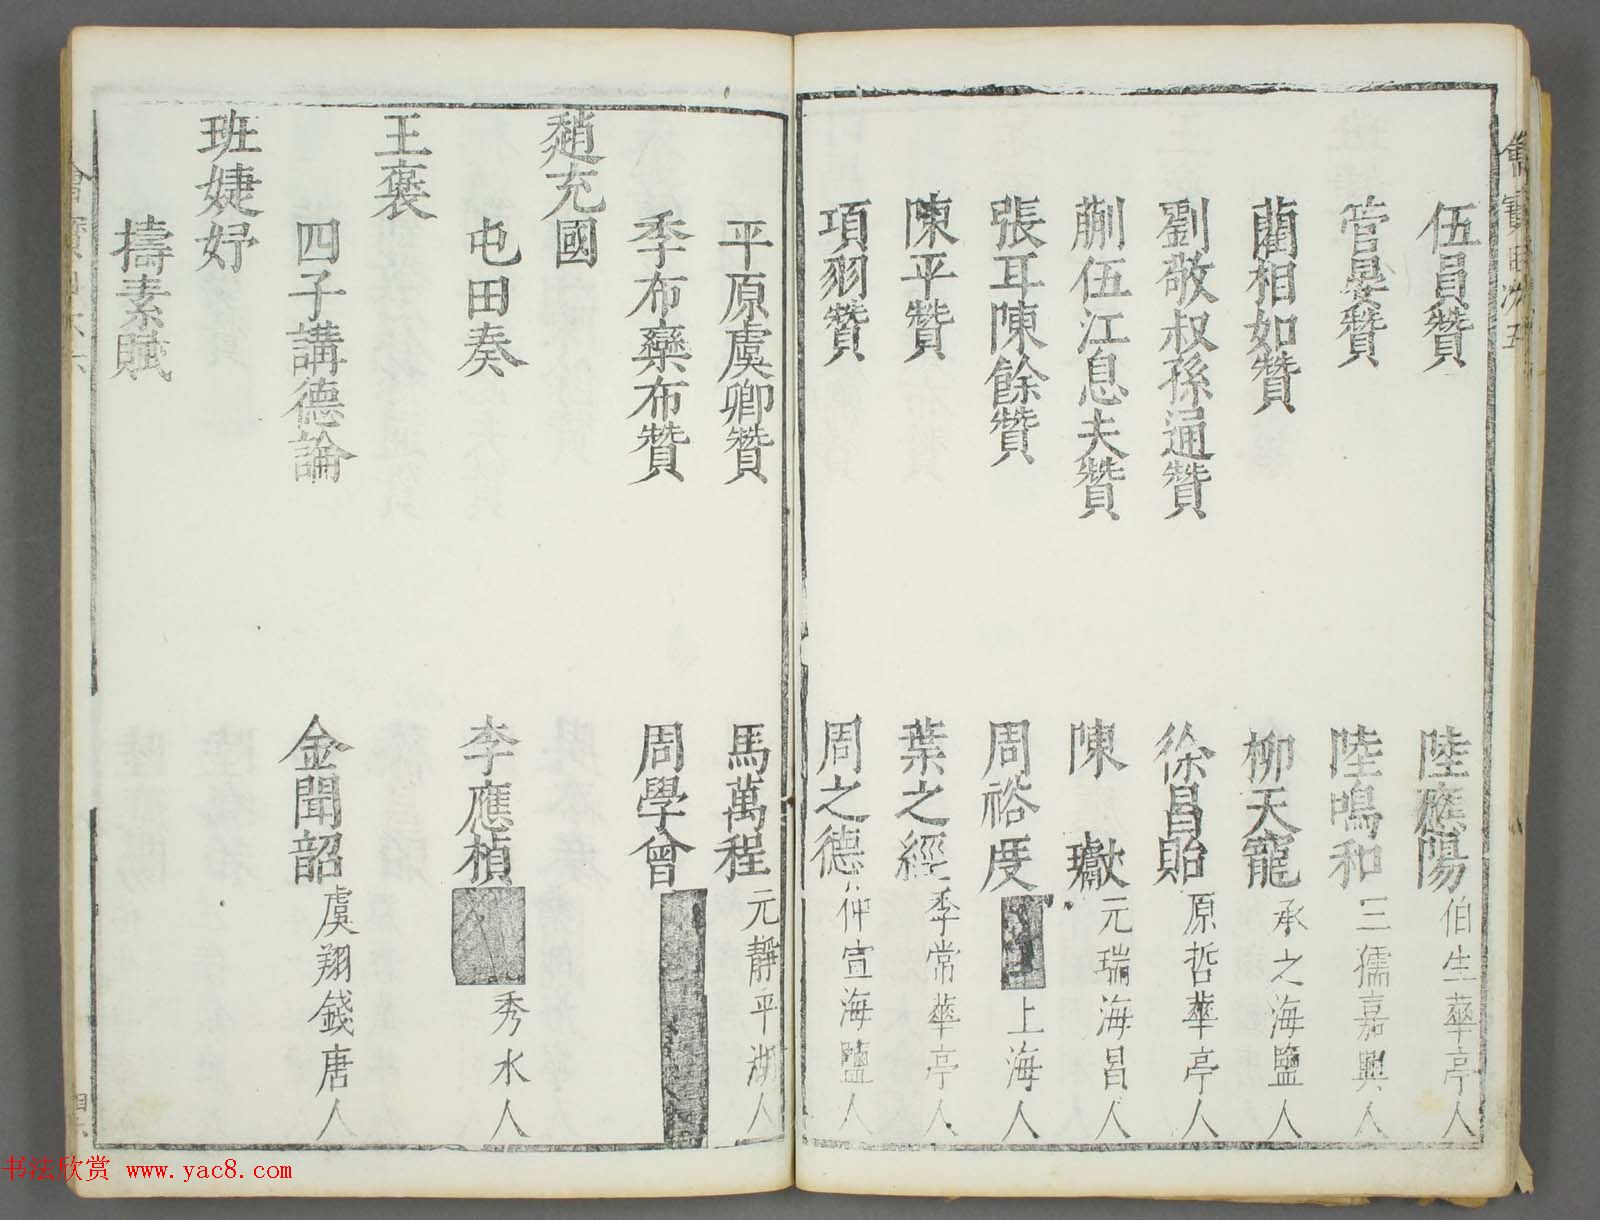 伍員贊 陸應陽 伯生華亭人
管晏贊 陸鳴和 三孺嘉興人
藺相如贊 柳天寵 承之海鹽人
劉敬叔孫通贊 徐昌貽 原哲華亭人
蒯伍江息夫贊 陳瓛 元瑞海昌人
張耳陳餘贊 周裕度 上海人
陳平贊 葉之經 季常華亭人
項羽贊 周之德 仲宣海鹽人
平原虞卿贊 馬萬程 元靜平湖人
季布欒布贊 周學曾
趙充國
屯田奏 李應楨 秀水人
王褒
四子講德論 金聞韶 虞翔錢唐人
班婕妤
擣素賦
书法欣赏 www.yac8.com